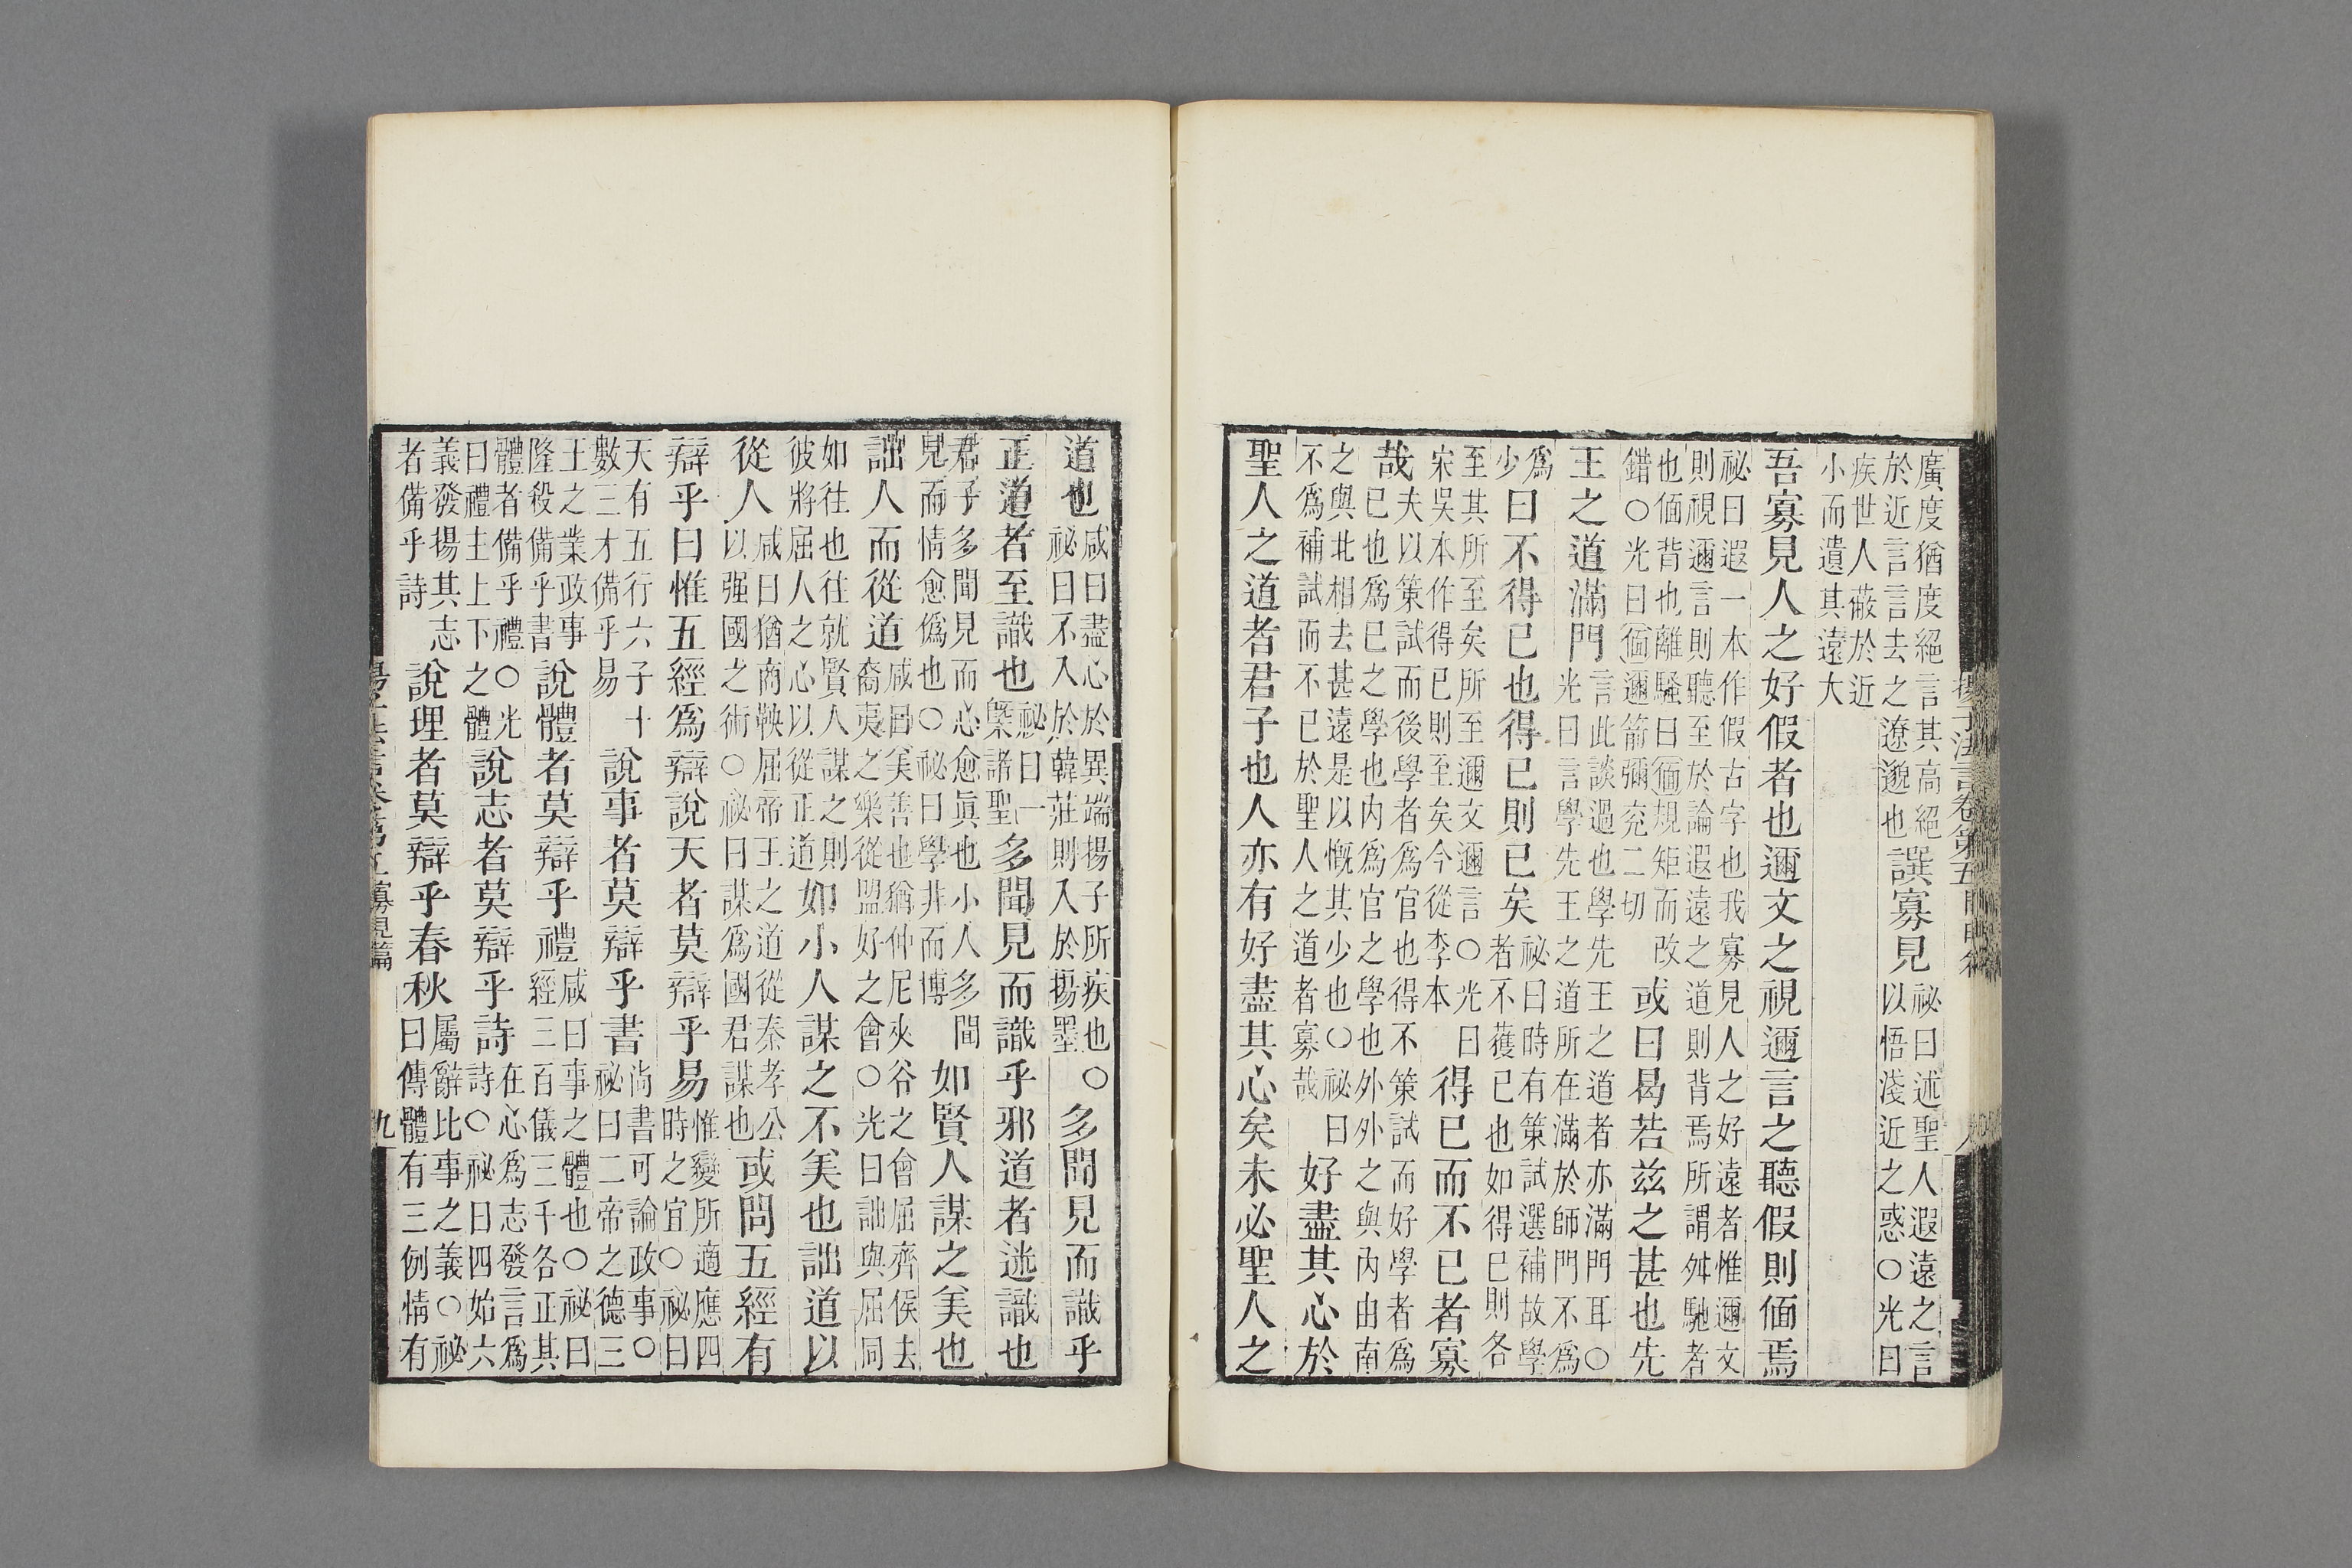 揚子法言卷第五
廣度猶度絕言其高絕於近言言去之遼邈也譔寡見祕曰述聖人遐遠之言以悟淺近之惑〇光曰
疾世人蔽於近小而遺其遠大
吾寡見人之好假者也邇文之視邇言之聽假則偭焉
祕曰遐一本作假古字也我寡見人之好遠者惟邇文則視邇言則聽至於論遐遠之道則背焉所謂舛馳者
也偭背也離騷曰偭規矩而改錯〇光曰偭邇箭彌兗二切或曰曷若兹之甚也先
王之道滿門言此談過也學先王之道者亦滿門耳〇光曰言學先王之道所在滿於師門不爲
爲少曰不得已也得已則已矣祕曰時有策試選補故學者不獲已也如得已則各
至其所至矣所至邇文邇言〇光曰宋吳本作得已則至矣今從李本得已而不已者寡
哉夫以策試而後學者爲官也得不策試而好學者爲已也爲已之學也内爲官之學也外外之與内由南
之與北相去甚遠是以慨其少也〇祕曰不爲補試而不已於聖人之道者寡哉好盡其心於
聖人之道者君子也人亦有好盡其心矣未必聖人之
道也咸曰盡心於異端揚子所疾也〇祕曰不入於韓莊則入於揚墨多聞見而識乎
正道者至識也祕曰一槩諸聖多聞見而識乎邪道者迷識也
君子多聞見而心愈眞也小人多聞見而情愈僞也〇祕曰學非而博如賢人謀之美也
詘人而從道咸曰美善也猶仲尼夾谷之會屈齊侯去裔夷之樂從盟好之會〇光曰詘與屈同
如往也往就賢人謀之則彼將屈人之心以從正道如小人謀之不美也詘道以
從人咸曰猶商鞅屈帝王之道從秦孝公以强國之術〇祕曰謀爲國君謀也或問五經有
辯乎曰惟五經爲辯說天者莫辯乎易惟變所適應四時之宜〇祕曰
天有五行六子十數三才備乎易說事者莫辯乎書尚書可論政事〇祕曰二帝之德三
王之業政事隆殺備乎書說體者莫辯乎禮咸曰事之體也〇祕曰經三百儀三千各正其
體者備乎禮〇光曰禮主上下之體說志者莫辯乎詩在心爲志發言爲詩〇祕曰四始六
義發揚其志者備乎詩說理者莫辯乎春秋屬辭比事之義〇祕曰傳體有三例情有
寡見篇 九